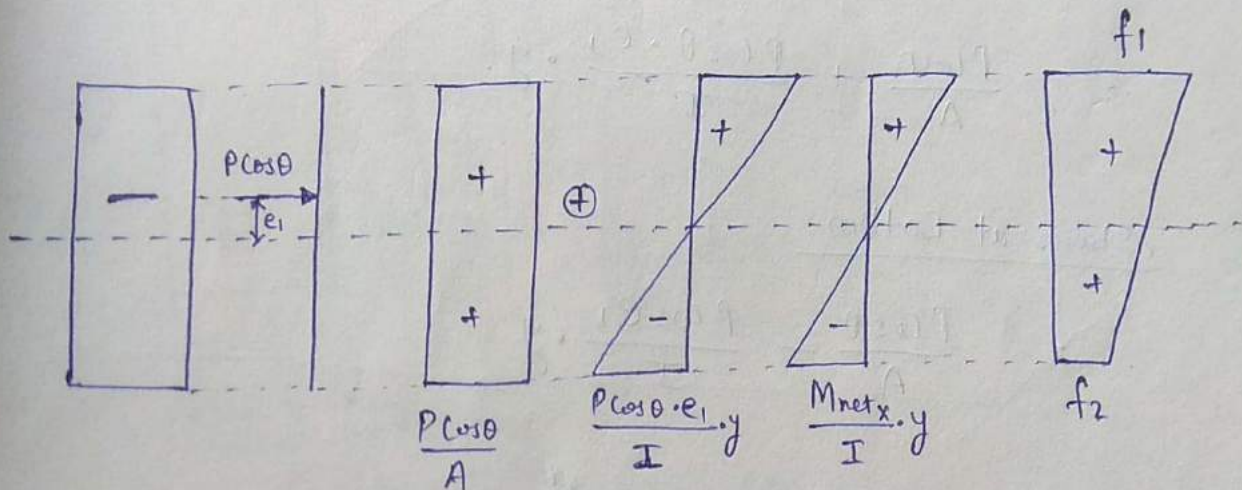 f1
Pcosθ
e1
+
+
⊕
+
-
+
-
+
+
Pcosθ/A
Pcosθ·e1/I .y
Mnetx/I .y
f2